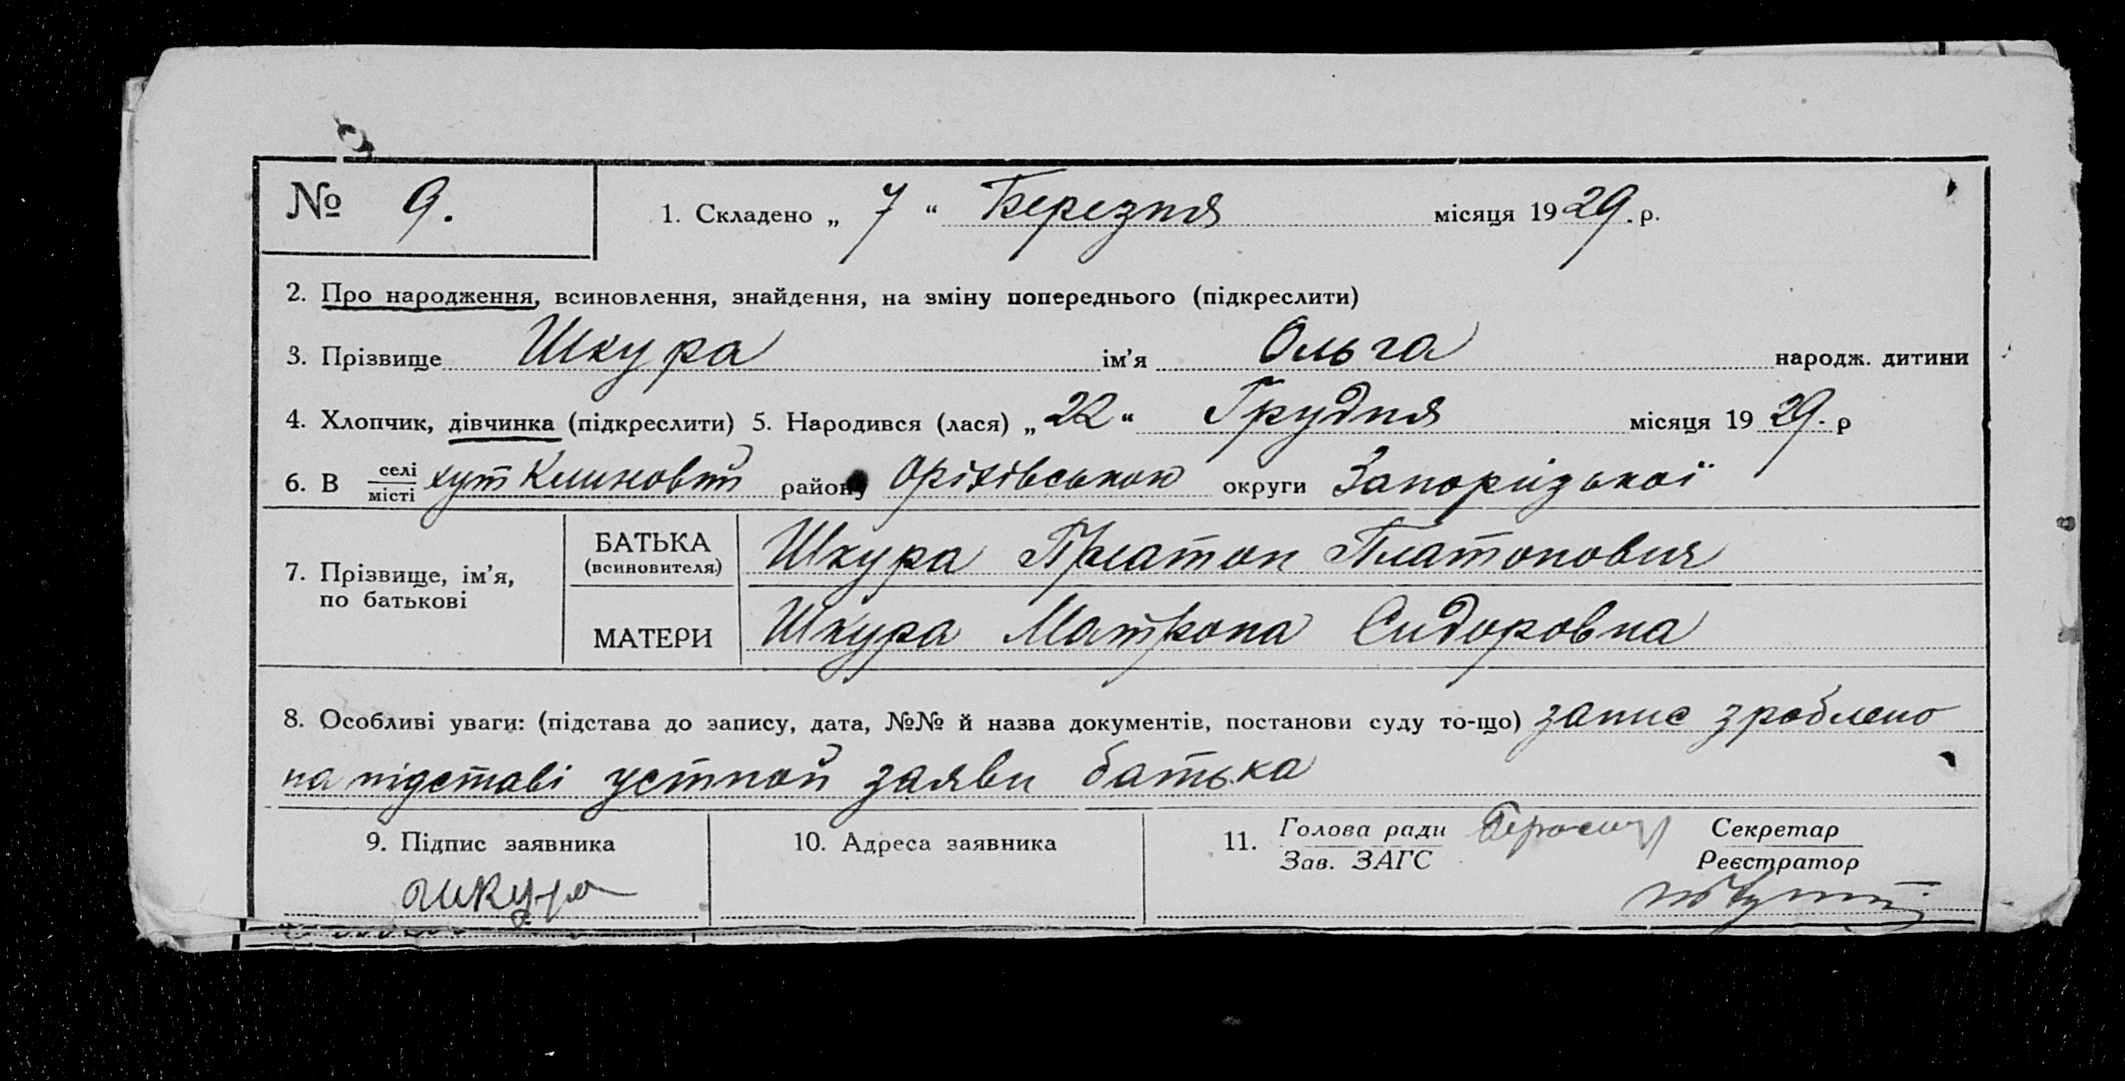 № 9. 1. Складено „ 7 “ Березня місяця 1929. р.
2. Про народження, всиновлення, знайдення, на зміну попереднього (підкреслити)
3. Прізвище Шкура ім’я Ольга народж. дитини
4. Хлопчик, дівчинка (підкреслити) 5. Народився (лася) „ 22 “ Грудня місяця 1929. р
6. В селі/місті хут району Оріхівського округи Запорізької
7. Прізвище, ім’я, по батькові
БАТЬКА (всиновителя) Шкура Платон Платонович
МАТЕРИ Шкура Матрона Сидоровна
8. Особливі уваги: (підстава до запису, дата, №№ й назва документів, постанови суду то-що) запис зроблено
на підставі устной заяви батька
9. Підпис заявника 10. Адреса заявника 11. Голова ради Секретар
Зав. ЗАГС Реєстратор
Шкура